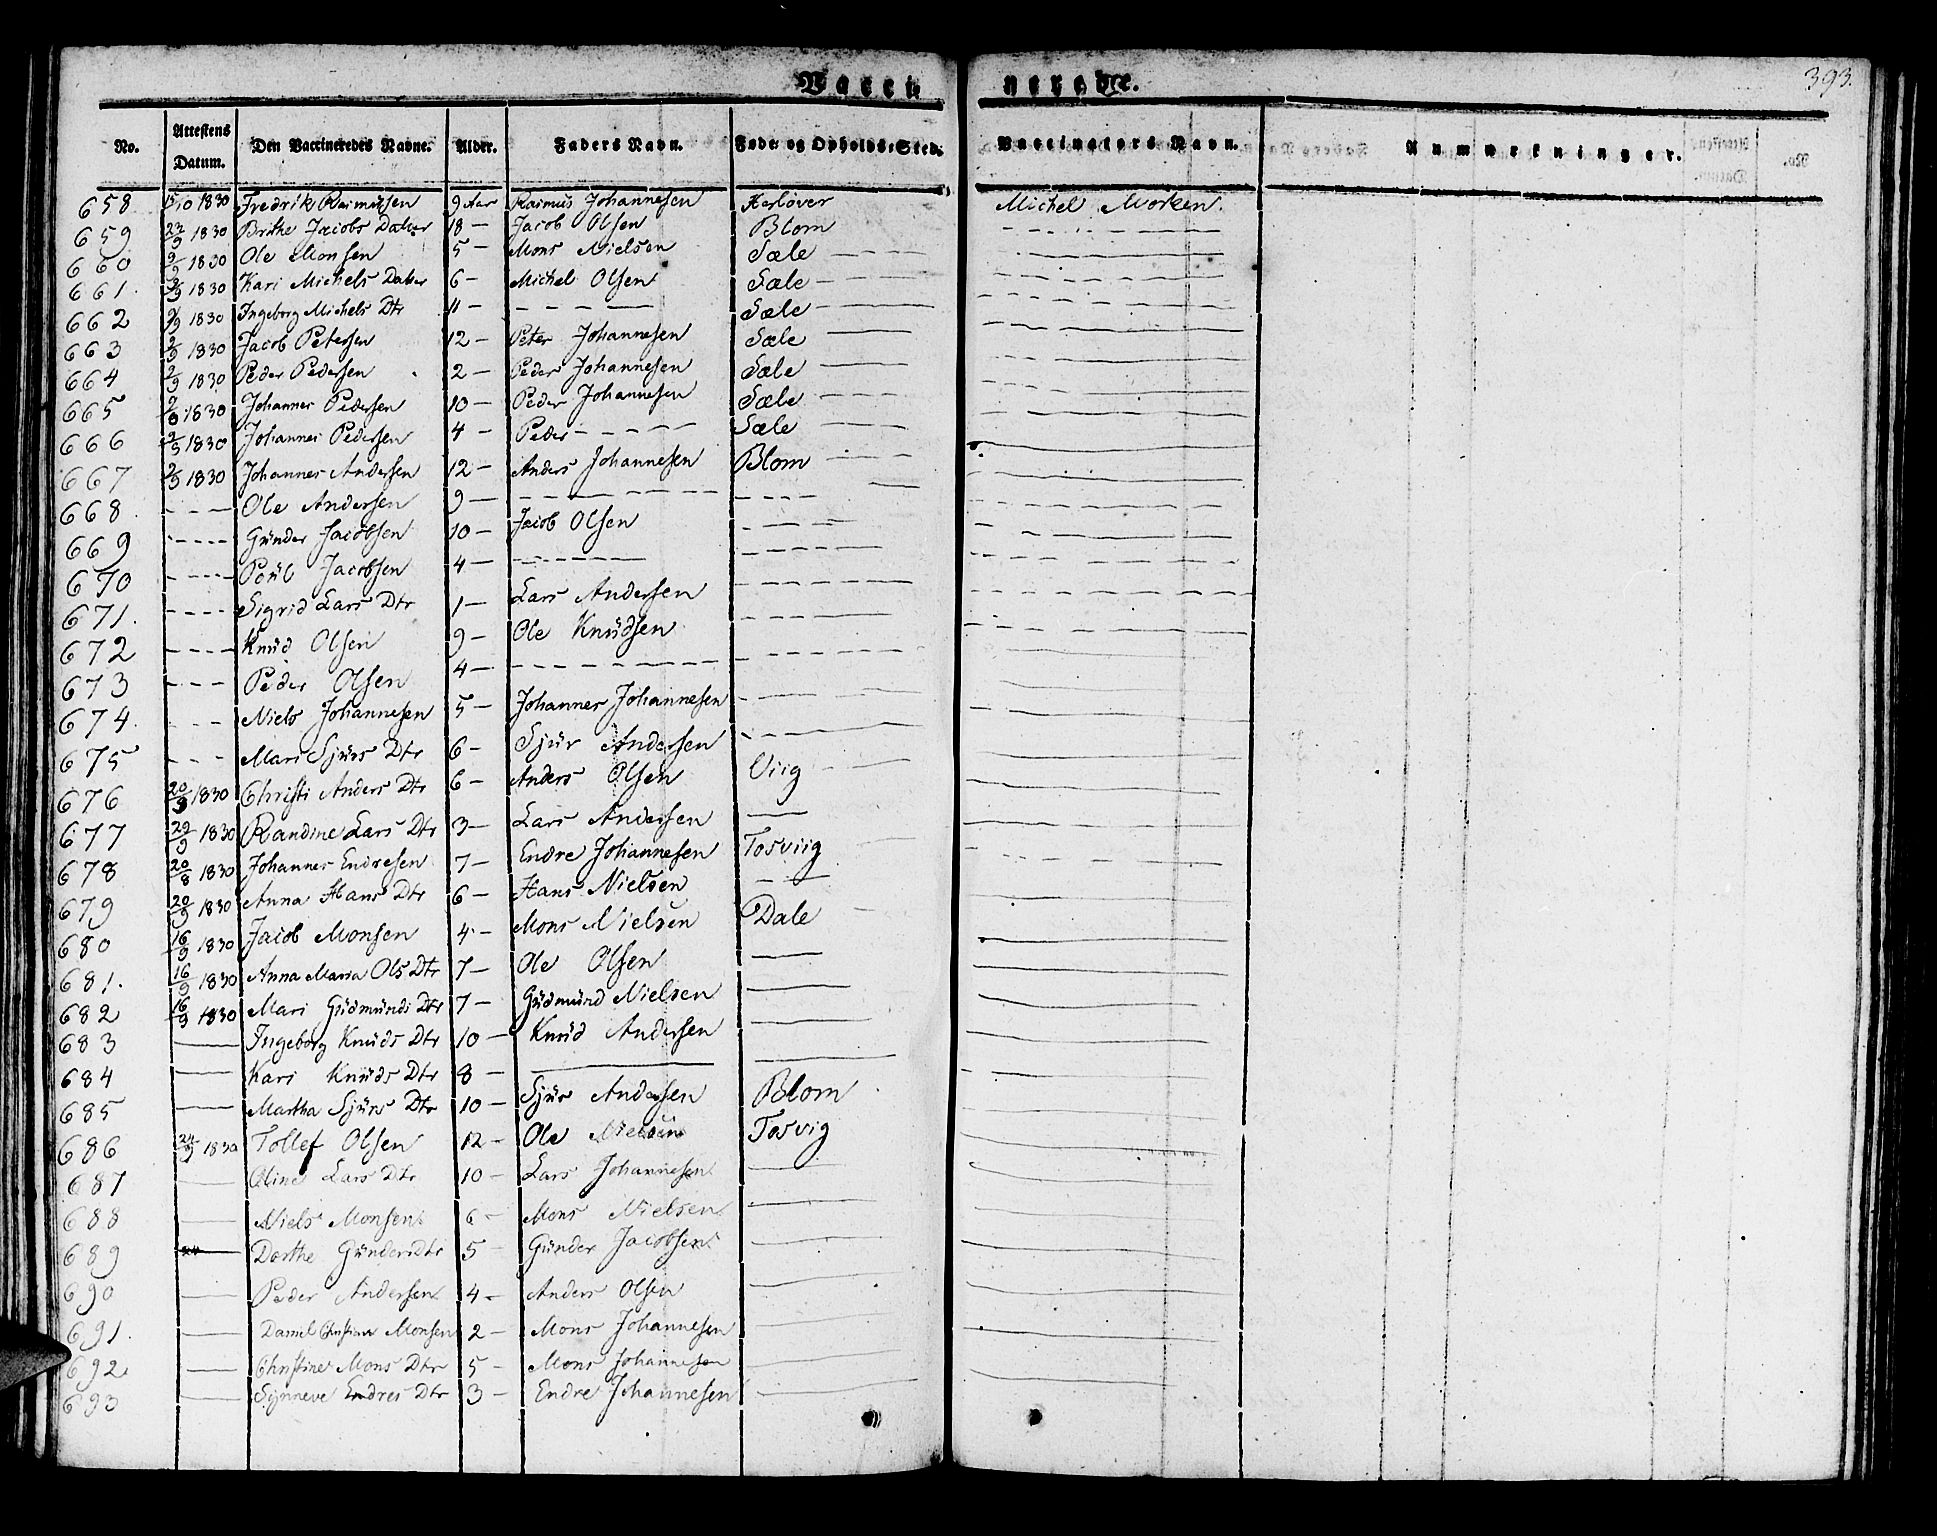 Vaccinerede.
393.
No. Attestens Datum. Den Vaccineredes Navne. Alder. Faders Navn. Føde- og Opholds-Sted. Vaccinateurs Navn. Anmærkninger.
658 15/10 1830 Fredrik Rasmussen 9 Aar Rasmus Johannesen Herløver Michel Morken
659 22/9 1830 Brithe Jacobs Datter 18 — Jacob Olsen Blom
660 9/9 1830 Ole Monsen 5 — Mons Nielsen Sæle
661. 9/9 1830 Kari Michels Datter 6 — Michel Olsen Sæle —
662 9/9 1830 Ingeborg Michels Dtr 11 — — — — — Sæle
663 9/9 1830 Jacob Petersen 12 — Peter Johannesen Sæle
664 9/9 1830 Peder Pedersen 2 — Peder Johannesen Sæle
665 1830 Johannes Pedersen 10 — Peder Johannesen Sæle
666 1830 Johannes Pedersen 4 — Peder — — — Sæle
667 1830 Johannes Andersen 12 — Anders Johannesen Blom
668. — — — Ole Andersen 9 — — — — —
669 — — — Gunder Jacobsen 10 — Jacob Olsen
670 — — — Poül Jacobsen 4 — — — — —
671. — — — Sigrid Lars Dtr 1 — Lars Andersen
672 — — — Knüd Olsen 9 — Ole Knüdsen
673 — — — Peder Olsen 4 — — — — —
674. — — — Niels Johannesen 5 — Johannes Johannesen —
675 — — — Mari Sjürs Dtr 6 — Sjür Andersen
676 20/9 1830 Christi Anders Dtr 6 — Anders Olsen Viig
677 29/9 1830 Randine Lars Dtr 3 — Lars Andersen —
678 20/8 1830 Johannes Endresen 7 — Endre Johannesen Tosviig
679 20/9 1830 Anna Hans Dtr 6 — Hans Nielsen —
680 16/9 1830 Jacob Monsen 4 — Mons Nielsen Dale
681. 16/9 1830 Anna Maria Ols Dtr 7 — Ole Olsen —
682 16/9 1830 Mari Güdmünds Dtr 7 — Güdmünd Nielsen —
683 — Ingeborg Knüds Dtr 10 — Knüd Andersen —
684 — Kari Knüds Dtr 8 — — —
685 — Martha Sjürs Dtr 10 — Sjür Andersen Blom
686 24/9 1830 Tollef Olsen 12 — Ole Nielsen Tosvig
687 — Oline Lars Dtr 10 — Lars Johannesen —
688 — Niels Monsen 6 — Mons Nielsen —
689 — Dorthe Günders Dtr 5 — Günder Jacobsen —
690 — Peder Andersen 4 — Anders Olsen —
691. — Daniel Christian Monsen 2 — Mons Johannesen —
692 — Christine Mons Dtr 5 — Mons Johannesen —
693 — Synneve Endres Dtr 3 — Endre Johannesen —